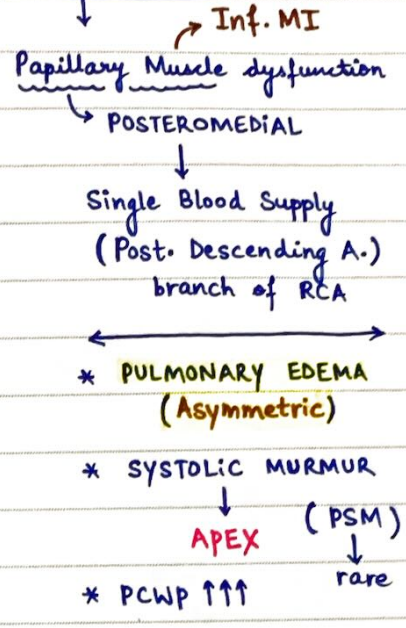 ↓ → Inf. MI
Papillary Muscle dysfunction
↳ POSTEROMEDIAL
↓
Single Blood Supply
(Post. Descending A.)
branch of RCA
↔
* PULMONARY EDEMA
(Asymmetric)
* SYSTOLIC MURMUR
↓ (PSM)
APEX ↓
* PCWP ↑↑↑ rare